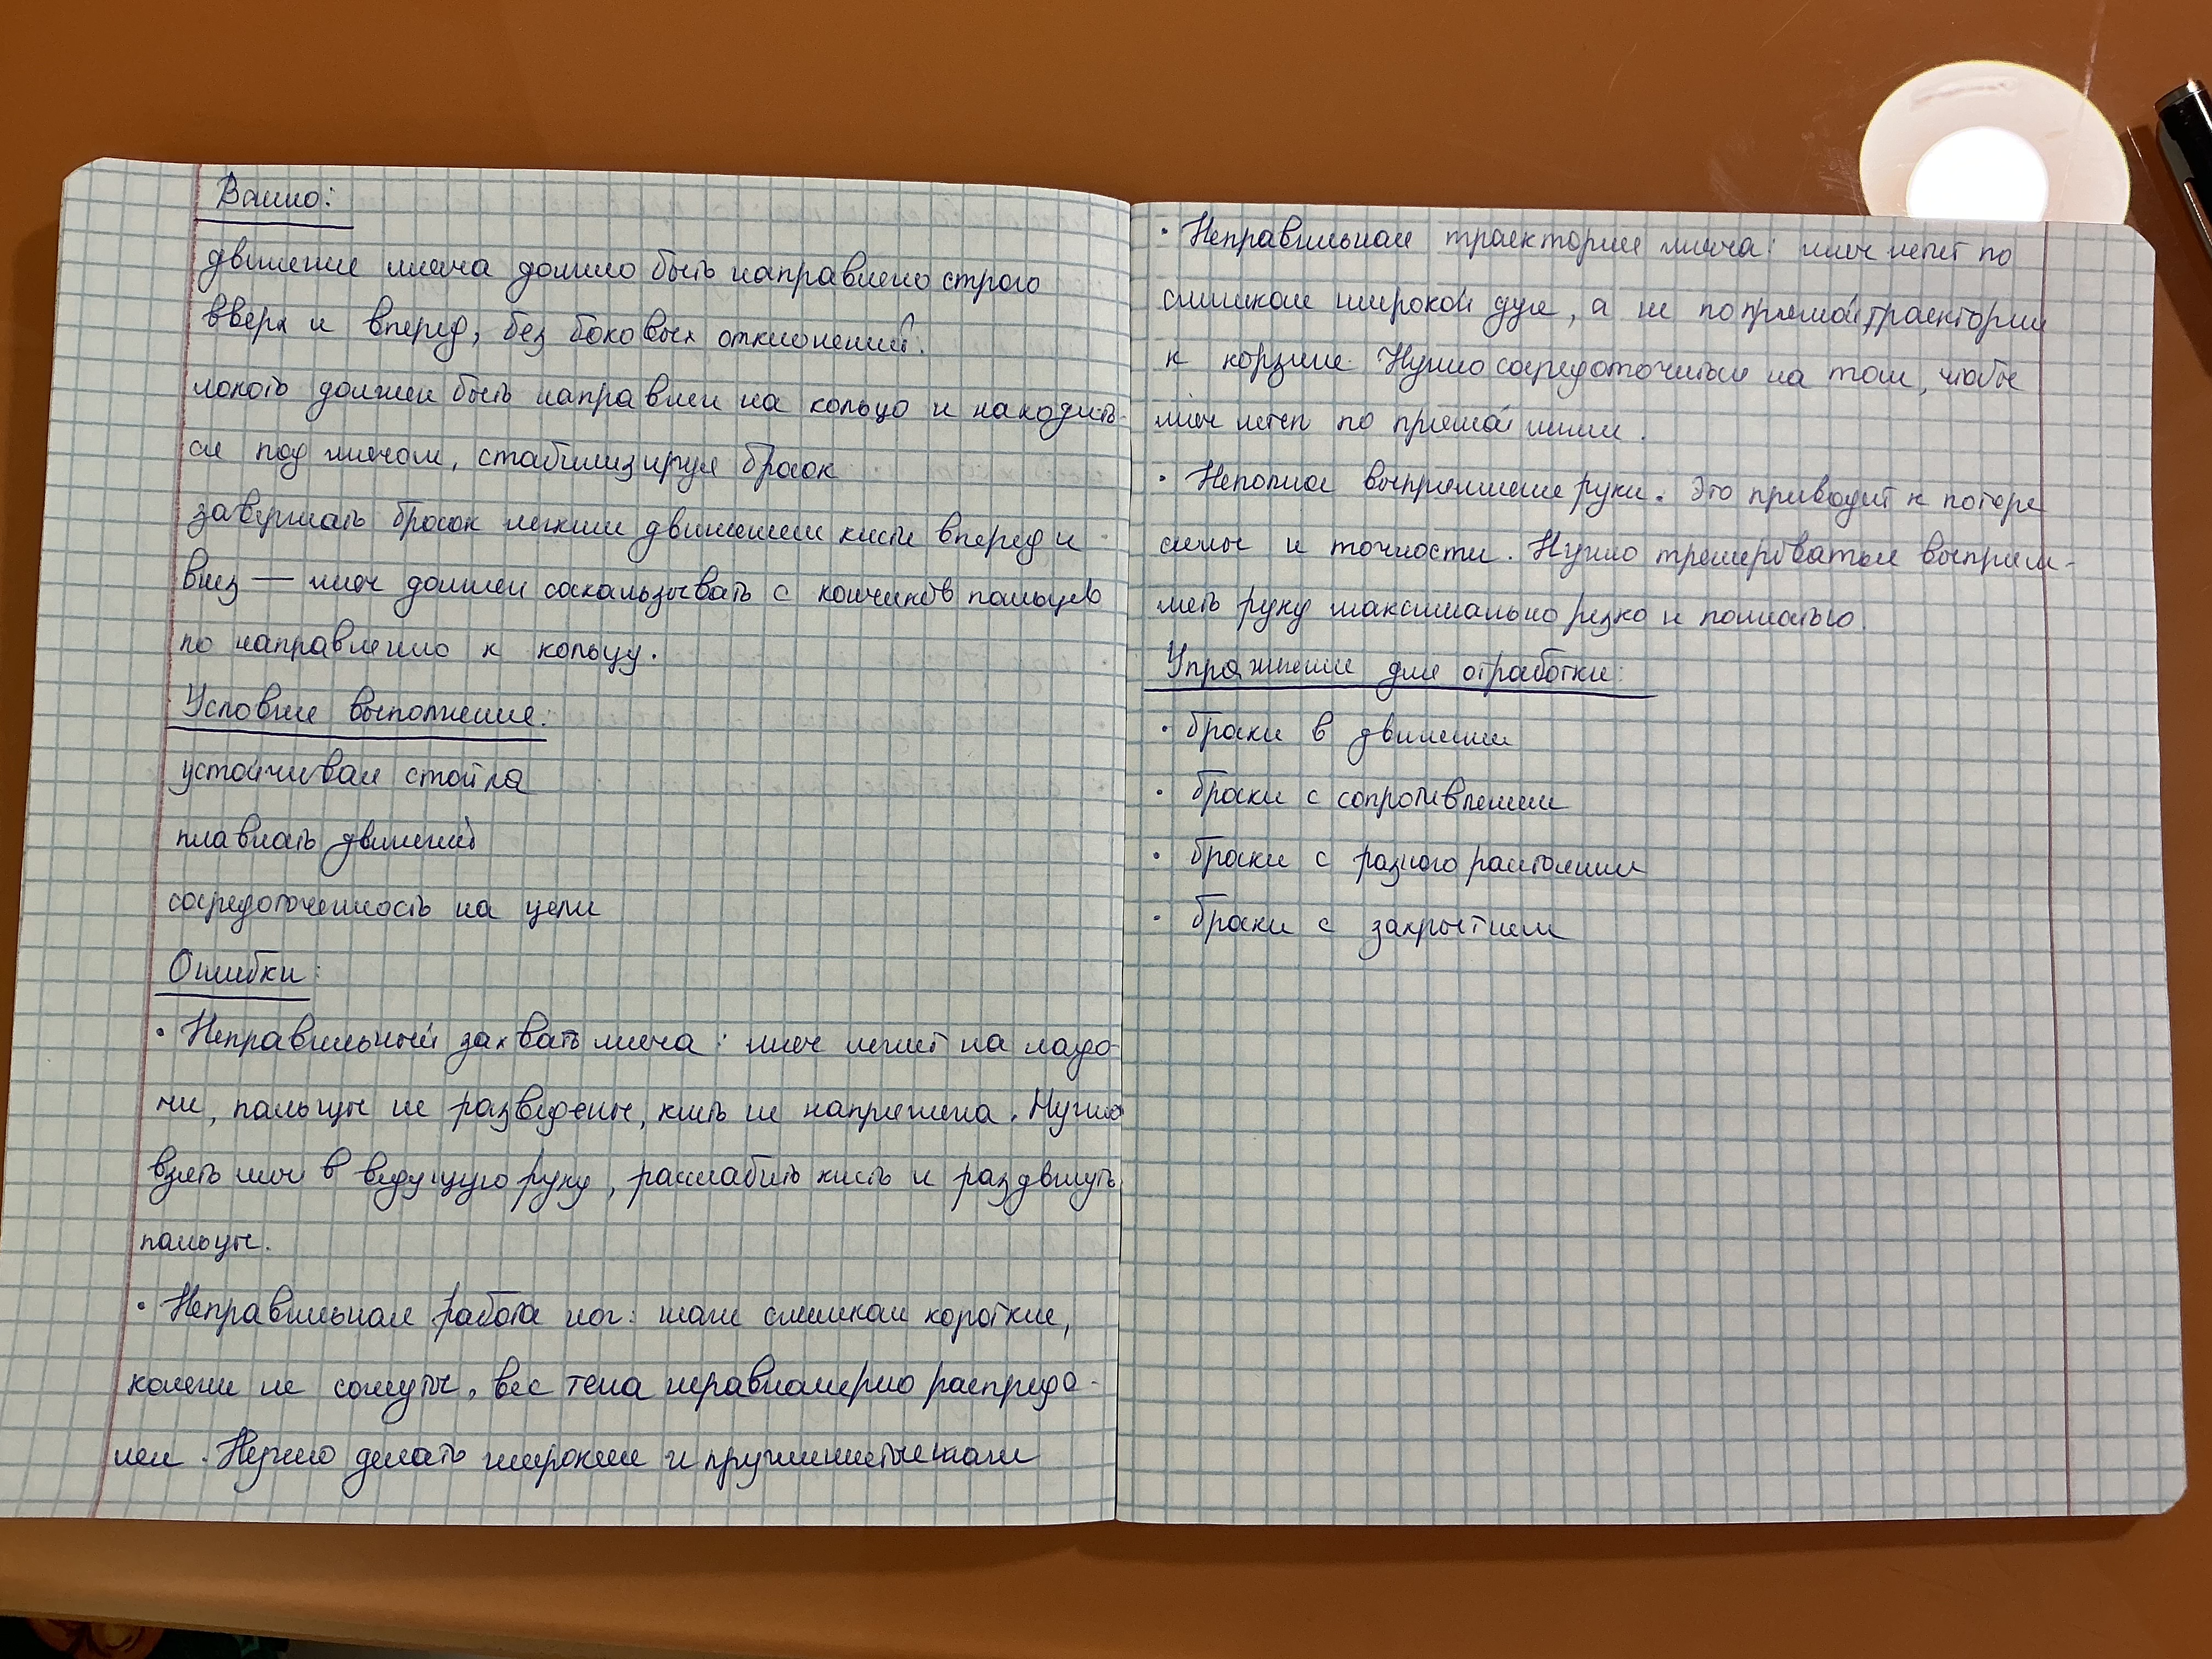 Важно:
движение мяча должно быть направлено строго
вверх и вперед, без боковых отклонений.
локоть должен быть направлен на кольцо и находить-
ся под мячом, стабилизируя бросок
завершать бросок легким движением кисти вперед и
вниз — мяч должен соскальзывать с кончиков пальцев
по направлению к кольцу.
Условия выполнения:
устойчивая стойка
плавность движений
сосредоточенность на цели
Ошибки:
• Неправильный захват мяча: мяч лежит на ладо-
ни, пальцы не разведены, кисть не напряжена. Нужно
взять мяч в ведущую руку, расслабить кисть и раздвинуть
пальцы.
• Неправильная работа ног: шаги слишком короткие,
колени не согнуты, вес тела неравномерно распреде-
лен. Нужно делать широкие и пружинистые шаги
• Неправильная траектория мяча: мяч летит по
слишком широкой дуге, а не по прямой траектории
к корзине. Нужно сосредоточиться на том, чтобы
мяч летел по прямой линии.
• Неполное выпрямление руки. Это приводит к потере
силы и точности. Нужно тренироваться выпрям-
лять руку максимально резко и полностью.
Упражнения для отработки:
• броски в движении
• броски с сопротивлением
• броски с разного расстояния
• броски с закрытием